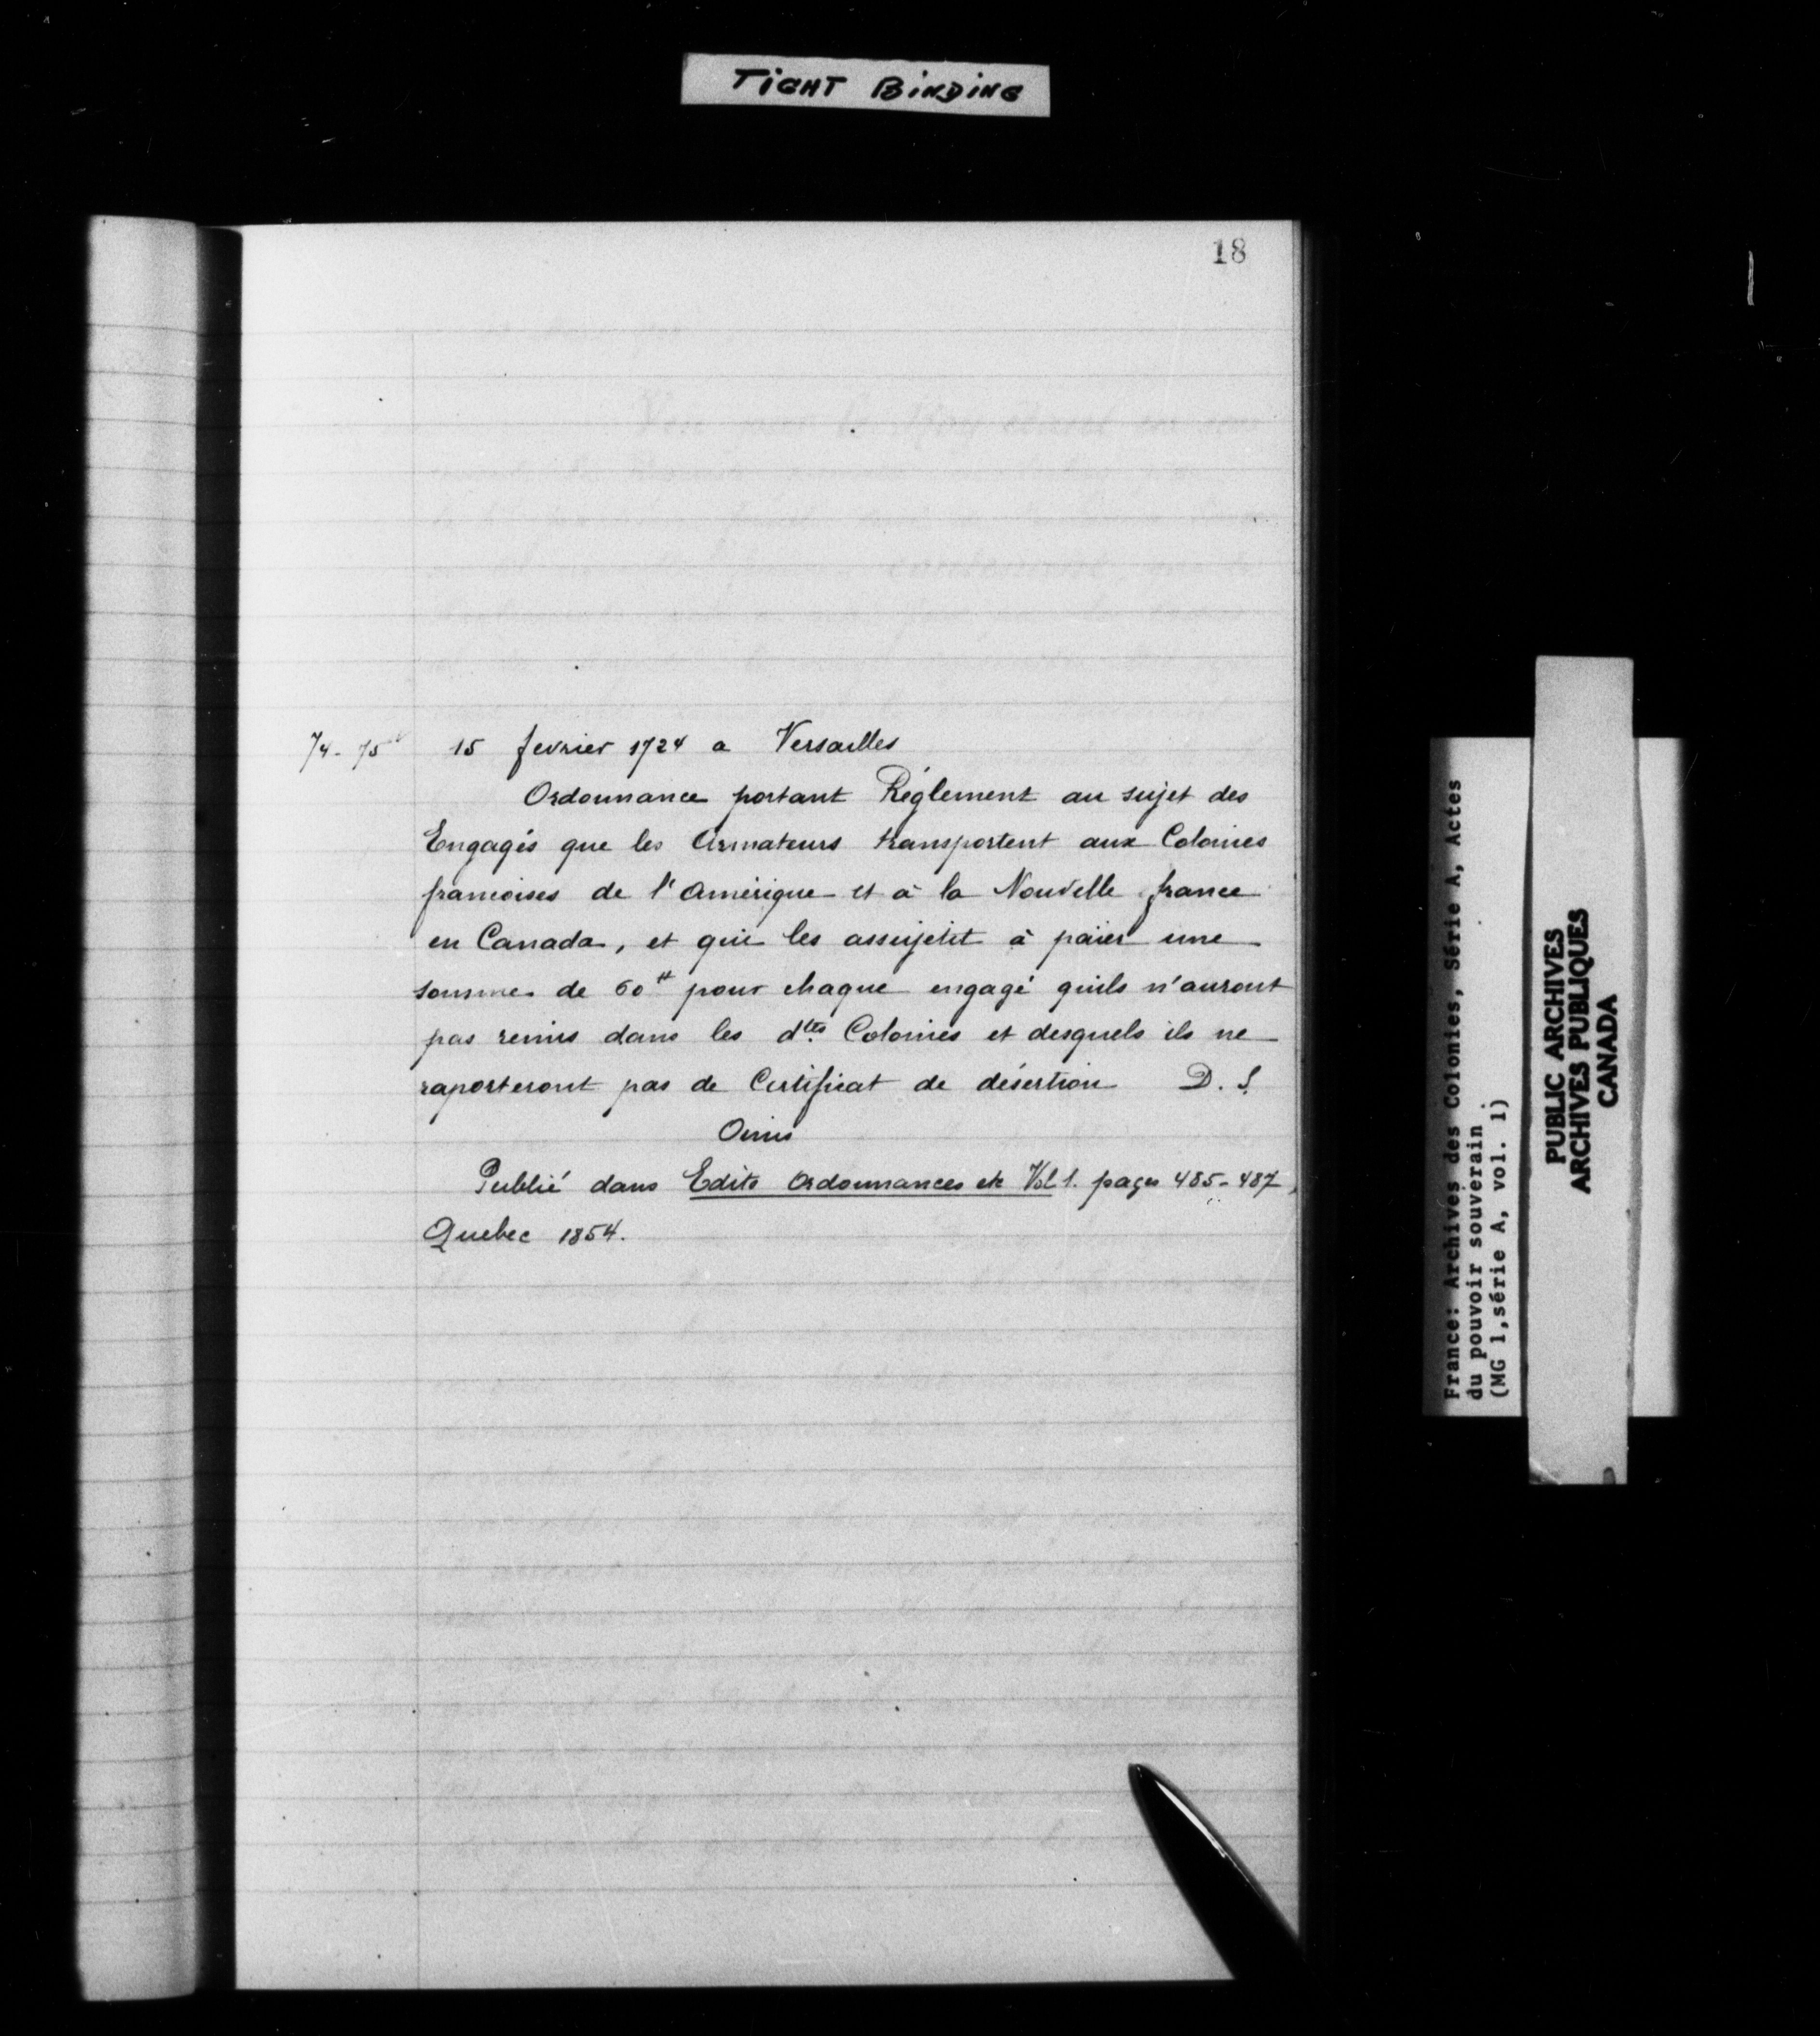 TIGHT BINDING
18
74-75
15 fevrier 1724 a Versailles
Ordonnance portant Réglement au sujet des
Engagés que les Armateurs transportent aux Colonies
francoises de l'Amérique et à la Nouvelle france
en Canada, et qui les assujetit à paier une
somme de 60# pour chaque engagé quils n'auront
pas remis dans les d.tes Colonies et desquels ils ne
raporteront pas de Certificat de désertion D. S.
Omis
Publié dans Edits Ordonnances etc Vol 1. pages 485-487,
Quebec 1854.
France: Archives des Colonies, Série A, Actes
du pouvoir souverain.
(MG 1,série A, vol. 1)
PUBLIC ARCHIVES
ARCHIVES PUBLIQUES
CANADA